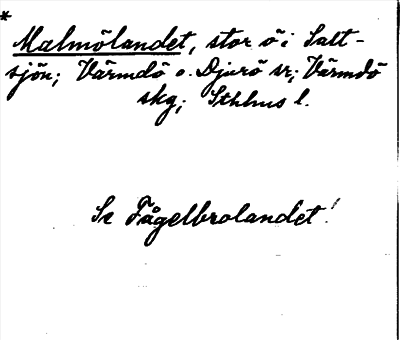 *
Malmölandet, stor ö i Salt-
sjön; Värmdö o. Djurö sr; Värmdö
skg; Sthlms l.
Se Fågelbrolandet!